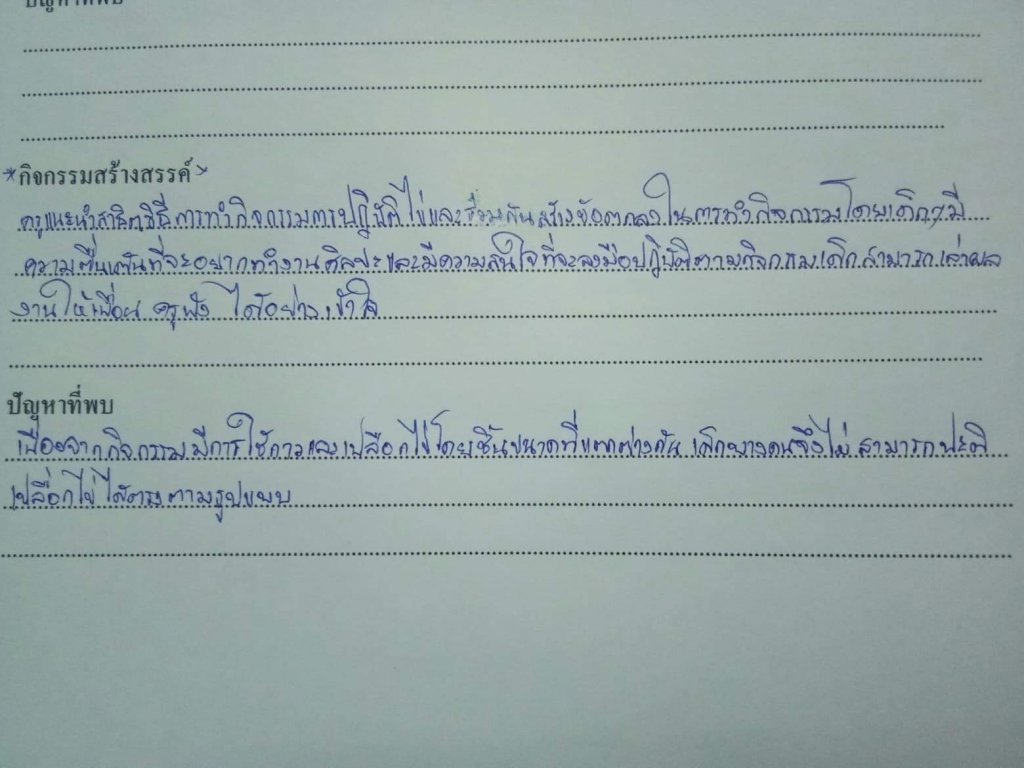 ปัญหาที่พบ
*กิจกรรมสร้างสรรค์*
ครูแนะนำสาธิตวิธีการทำกิจกรรมการปฏิบัติไข่และร่วมกันสร้างข้อตกลงในการทำกิจกรรมโดยเด็กๆมี
ความตื่นเต้นที่จะอยากทำงานศิลปะและมีความสนใจที่จะลงมือปฏิบัติตามกิจกรรมเด็กสามารถเล่าผล
งานให้เพื่อน ครูฟัง ได้อย่างเข้าใจ
ปัญหาที่พบ
เนื่องจากกิจกรรมมีการใช้กาวและเปลือกไข่โดยชิ้นขนาดที่แตกต่างกัน เด็กบางคนจึงไม่สามารถปะติ
เปลือกไข่ได้ตรงตามรูปแบบ